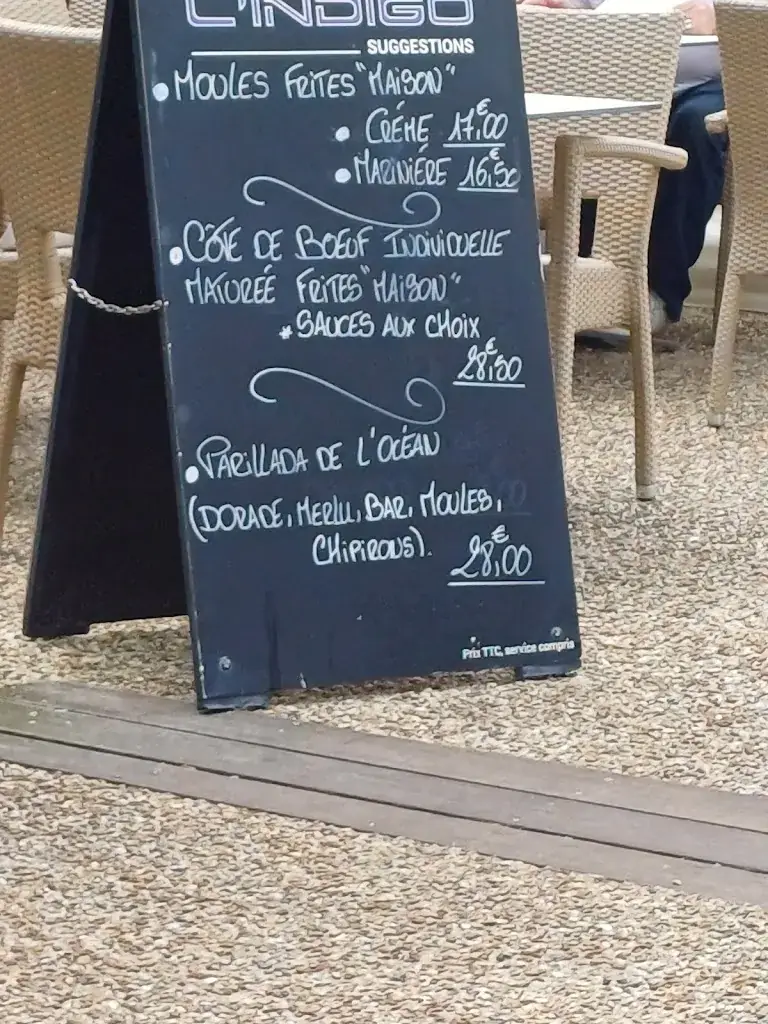 L'INDIGO
SUGGESTIONS
• MOULES FRITES "MAISON"
• CRÉME 17,00€
• MARINIÈRE 16,50€
• CÔTE DE BOEUF INDIVIDUELLE
MATUREÉ FRITES "MAISON"
* SAUCES AUX CHOIX
28,50€
• PARILLADA DE L'OCÉAN
(DORADE, MERLU, BAR, MOULES,
CHIPIRONS).
28,00€
Prix TTC, service compris